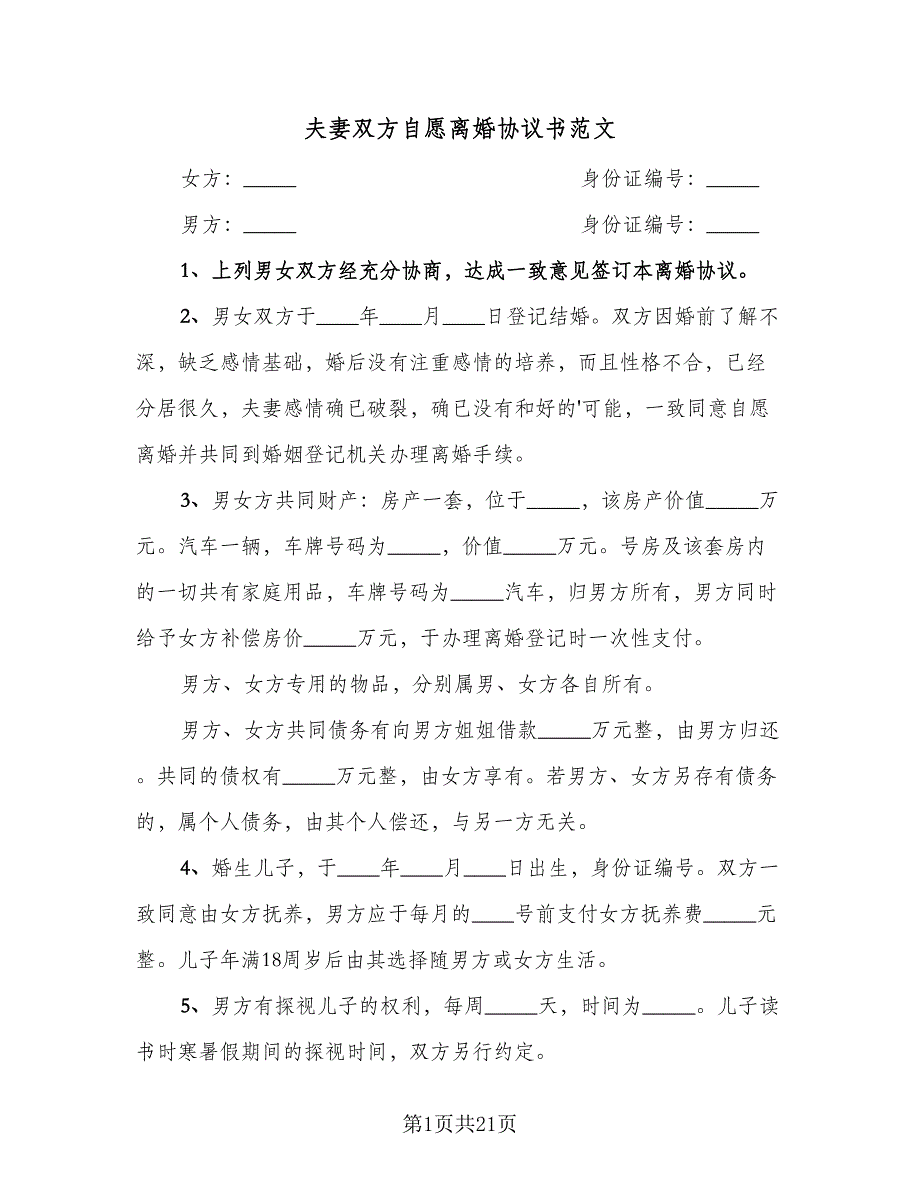 夫妻双方自愿离婚协议书范文
女方：_____ 身份证编号：_____
男方：_____ 身份证编号：_____
1、上列男女双方经充分协商，达成一致意见签订本离婚协议。
2、男女双方于____年____月____日登记结婚。双方因婚前了解不
深，缺乏感情基础，婚后没有注重感情的培养，而且性格不合，已经
分居很久，夫妻感情确已破裂，确已没有和好的'可能，一致同意自愿
离婚并共同到婚姻登记机关办理离婚手续。
3、男女方共同财产：房产一套，位于_____，该房产价值_____万
元。汽车一辆，车牌号码为_____，价值_____万元。号房及该套房内
的一切共有家庭用品，车牌号码为_____汽车，归男方所有，男方同时
给予女方补偿房价_____万元，于办理离婚登记时一次性支付。
男方、女方专用的物品，分别属男、女方各自所有。
男方、女方共同债务有向男方姐姐借款_____万元整，由男方归还
。共同的债权有_____万元整，由女方享有。若男方、女方另存有债务
的，属个人债务，由其个人偿还，与另一方无关。
4、婚生儿子，于____年____月____日出生，身份证编号。双方一
致同意由女方抚养，男方应于每月的____号前支付女方抚养费_____元
整。儿子年满18周岁后由其选择随男方或女方生活。
5、男方有探视儿子的权利，每周_____天，时间为_____。儿子读
书时寒暑假期间的探视时间，双方另行约定。
第1页共21页